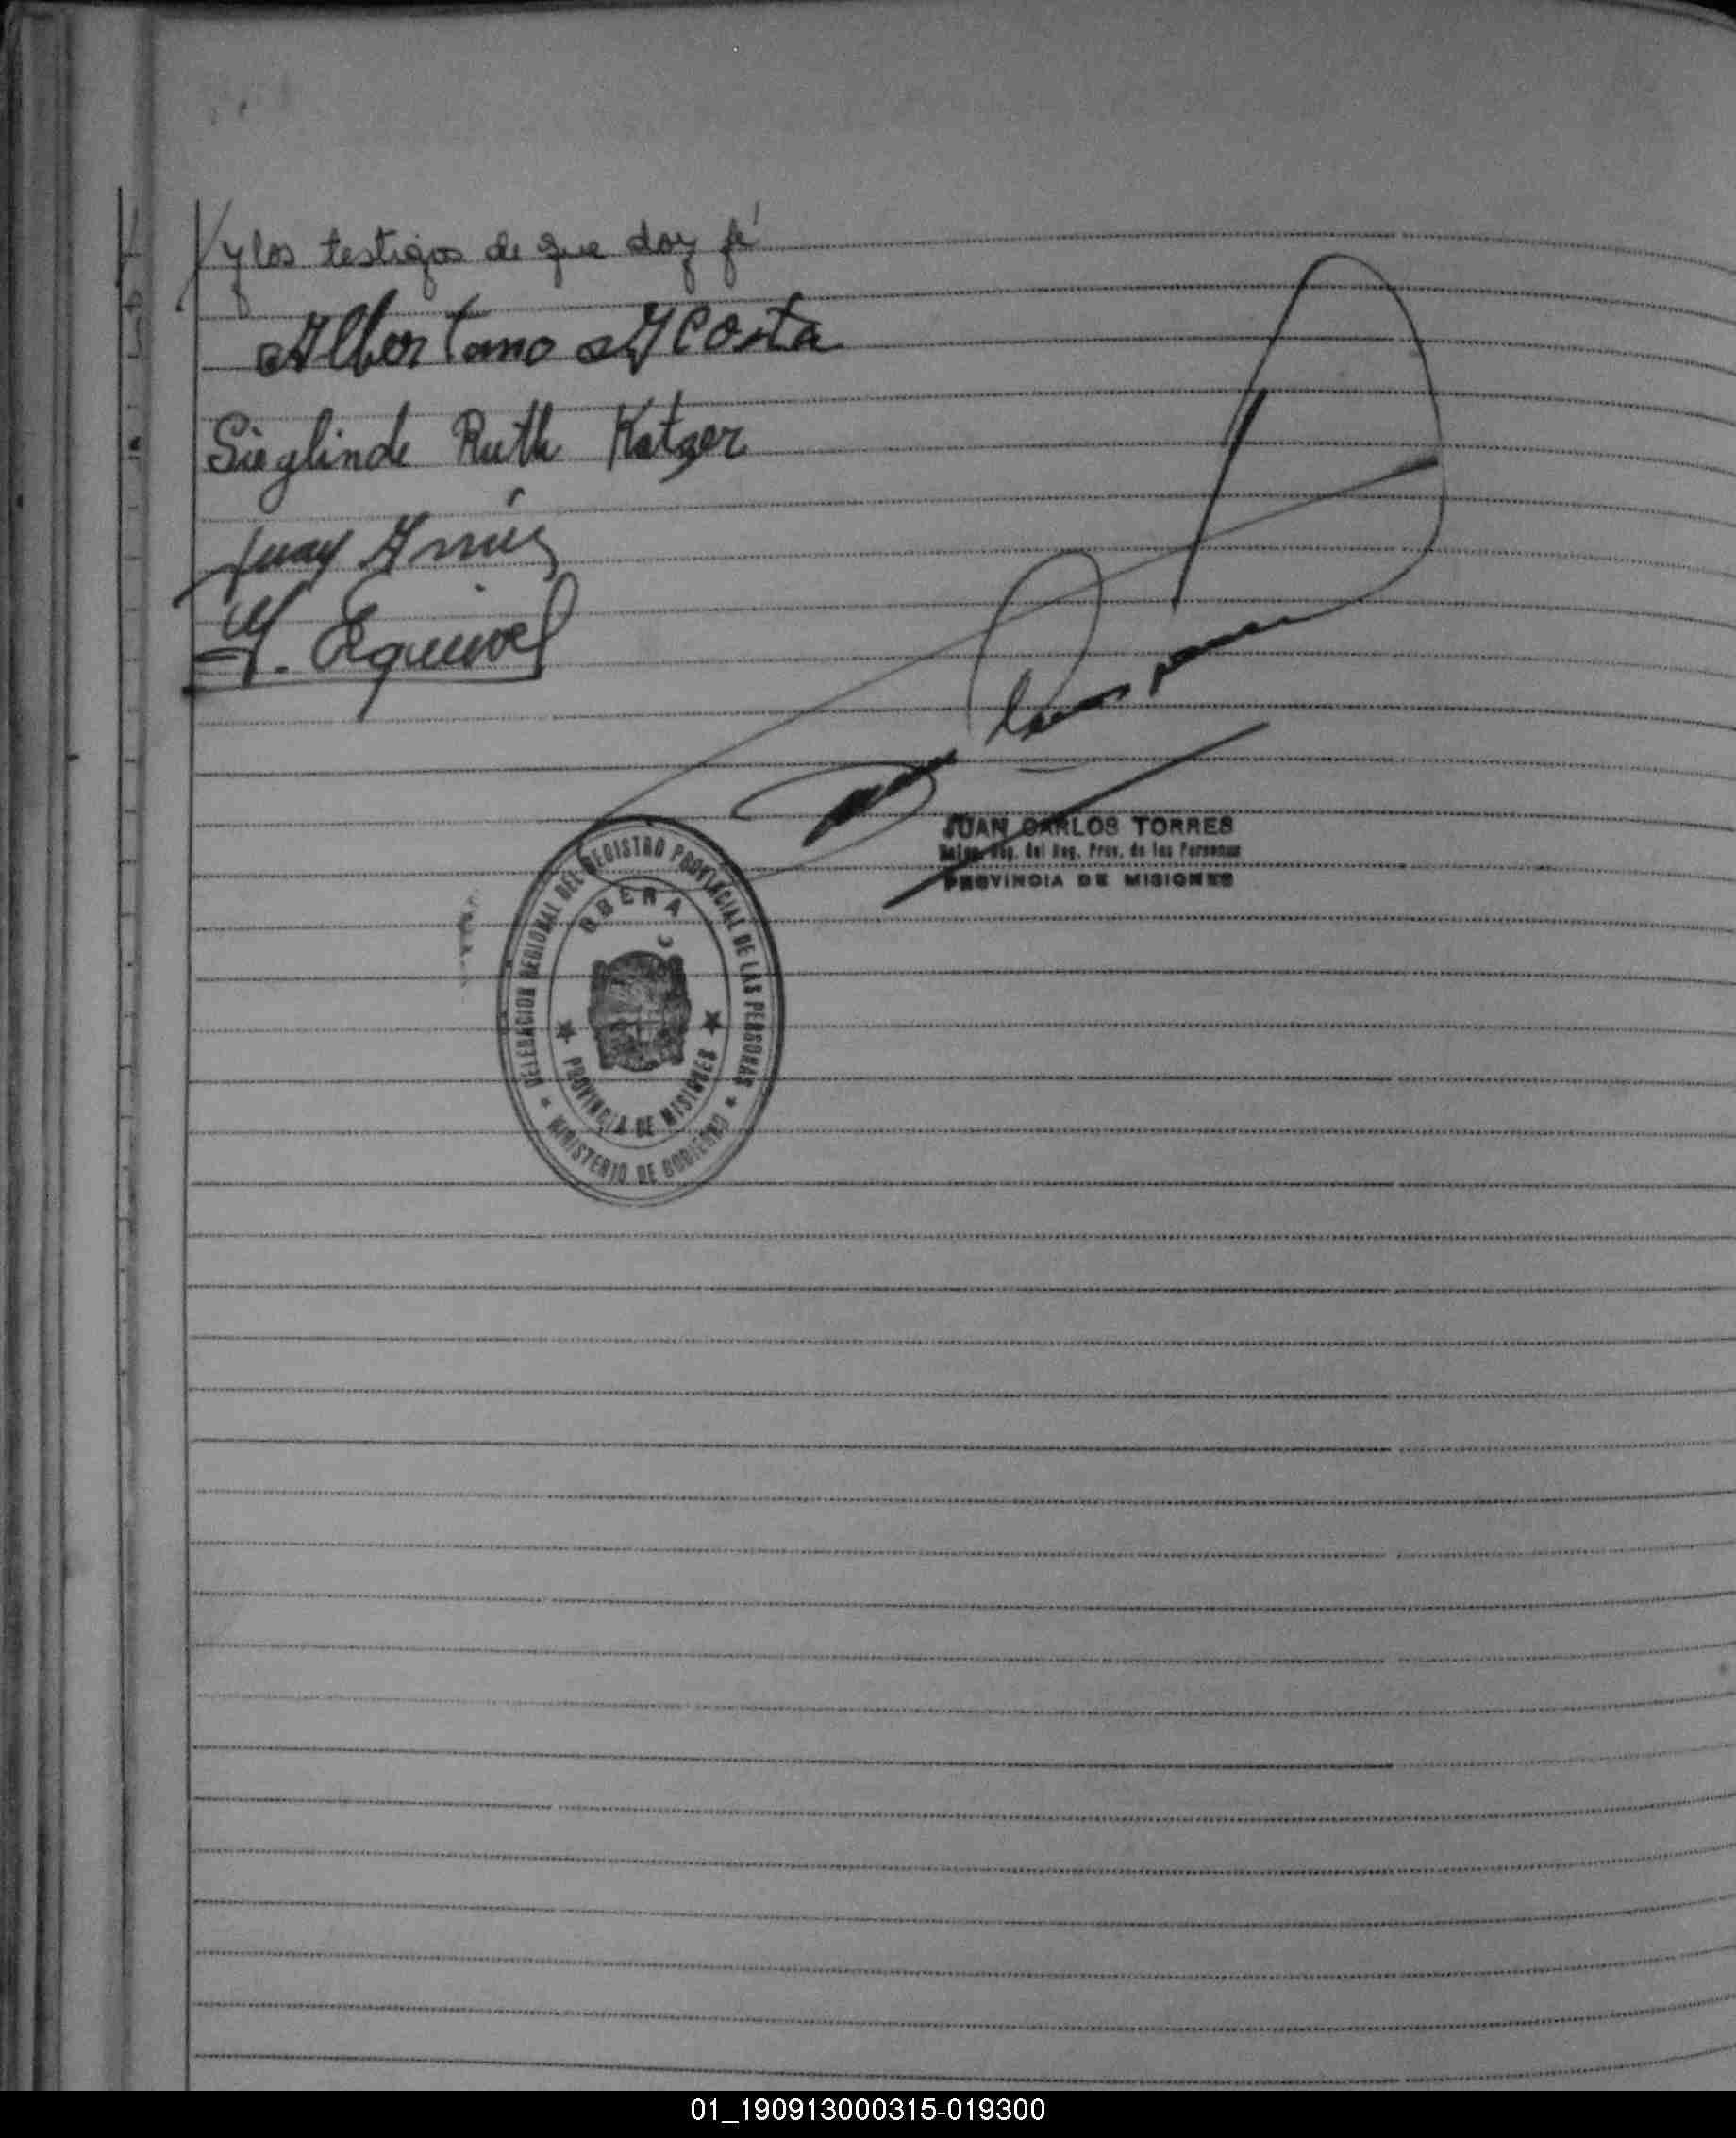 y los testigos de que doy fé
Albertano Acosta
Sieglinde Ruth Katzer
Juan
Y. Equivel
JUAN CARLOS TORRES
Reg. del Reg. Prov. de las Personas
PROVINCIA DE MISIONES
DELEGACION REGIONAL DEL REGISTRO PROVINCIAL DE LAS PERSONAS
OBERA
PROVINCIA DE MISIONES
MINISTERIO DE GOBIERNO
01_190913000315-019300